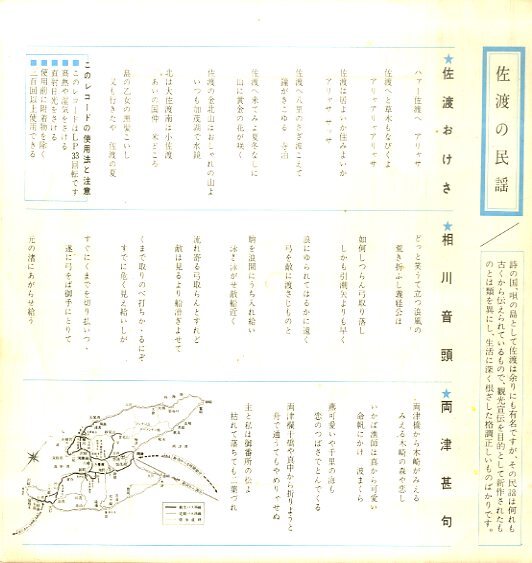 佐渡の民謡
詩の国、唄の島として佐渡は余りにも有名ですが、その民謡は何れも
古くから伝えられているもので、観光宣伝を目的として新作されたも
のとは類を異にし、生活に深く根ざした格調正しいものばかりです。
★佐渡おけさ
ハアー佐渡へ アリャサ
佐渡へと草木もなびくよ
アリャアリャアリャサ
佐渡は居よいか住みよいか
アリャサ サッサ
佐渡へ八里のさざ波こえて
鐘がきこゆる 寺泊
佐渡へ来てみよ夏冬なしに
山に黄金の花が咲く
佐渡の金北山はおしゃれの山よ
いつも加茂湖で水鏡
北は大佐渡南は小佐渡
あいの国仲 米どころ
島の乙女の黒髪こいし
又も行きたや 佐渡の夏
このレコードの使用法と注意
■このレコードはLP33回転です
■高熱や湿気をさける
■直射日光をさける
■使用前に附着物を除く
■二百回以上使用できる
★相川音頭
どっと笑うて立つ浪風の
荒き折ふし義経公は
如何しつらん弓取り落し
しかも引潮矢よりも早く
浪にゆられてはるかに遠く
弓を敵に渡さじものと
駒を浪間にうち入れ給い
泳ぎ泳がせ敵船近く
流れ寄る弓取らんとすれど
敵は見るより船漕ぎよせて
くまで取りのべ打ちかくるにぞ
すでに危く見え給いしが
すぐにくまでを切り払いつゝ
遂に弓をば御手にとりて
元の渚にあがらせ給う
★両津甚句
両津橋から木崎がみえる
みえる木崎の森や恋し
いかば漁師は真から可愛い
命帆にかけ 波まくら
鳶可愛いや千里の海も
恋のつばさでとんでくる
両津欄干橋や真中から折りょうと
舟で通うてもやめりゃせぬ
主と私は御番所の松よ
枯れて落ちても二葉づれ